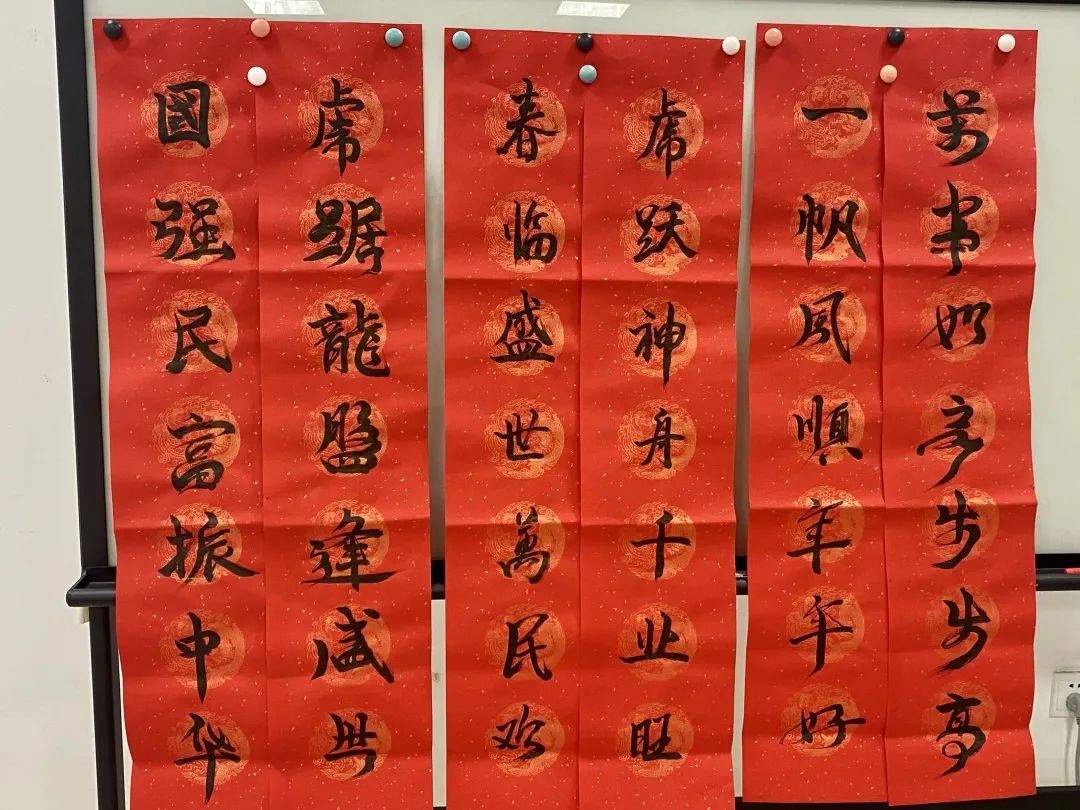 萬事如意步步高
一帆風順年年好
虎跃神舟千业旺
春临盛世萬民欢
虎踞龍盤逢盛世
國强民富振中华